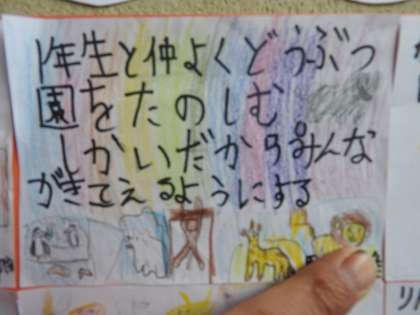 1年生と仲よくどうぶつ
園をたのしむ
しかいだから。みんな
がきてえるようにする